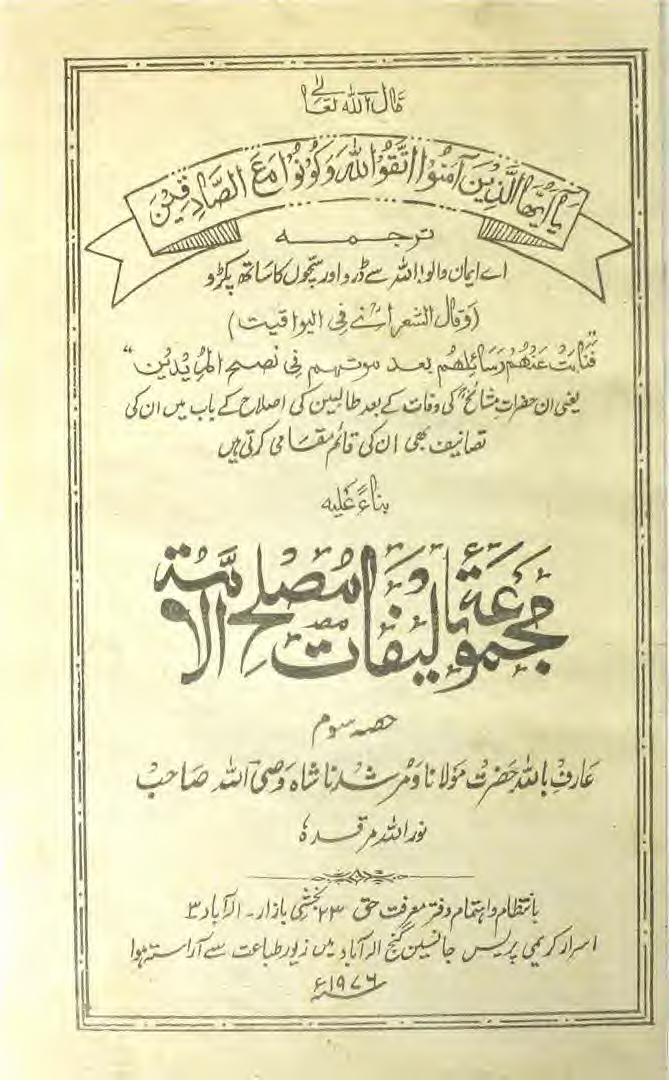 قال اللہ تعالےٰ
يَا اَيُّهَا الَّذِيْنَ آمَنُوا اتَّقُوا اللهَ وَكُوْنُوْا مَعَ الصَّادِقِيْنَ
ترجمہ
اے ایمان والو! اللہ سے ڈرو اور سچوں کا ساتھ پکڑو
(وقال الشعرانےؒ فی الیواقیت)
"فَنَابَتْ عَنْهُمْ رَسَائِلُهُمْ بعد موتهم فِي نصح المُرِيْدِيْن"
یعنی ان حضراتِ مشائخؒ کی وفات کے بعد طالبین کی اصلاح کے باب میں ان کی
تصانیف بھی ان کی قائم مقامی کرتی ہیں
بناءً علیہ
مجموعۂ تالیفات مصلح الامۃ
حصہ سوم
عارفِ باللہ حضرت مولانا و مرشدنا شاہ وصی اللہ صاحب
نور اللہ مرقدہٗ
بانتظام و اہتمام دفتر معرفت حق ۲۳ بخشی بازار۔ الہ آباد ۳
اسرار کریمی پریس جانسین گنج الہ آباد میں زیور طباعت سے آراستہ ہوا
۱۹۷۶ء